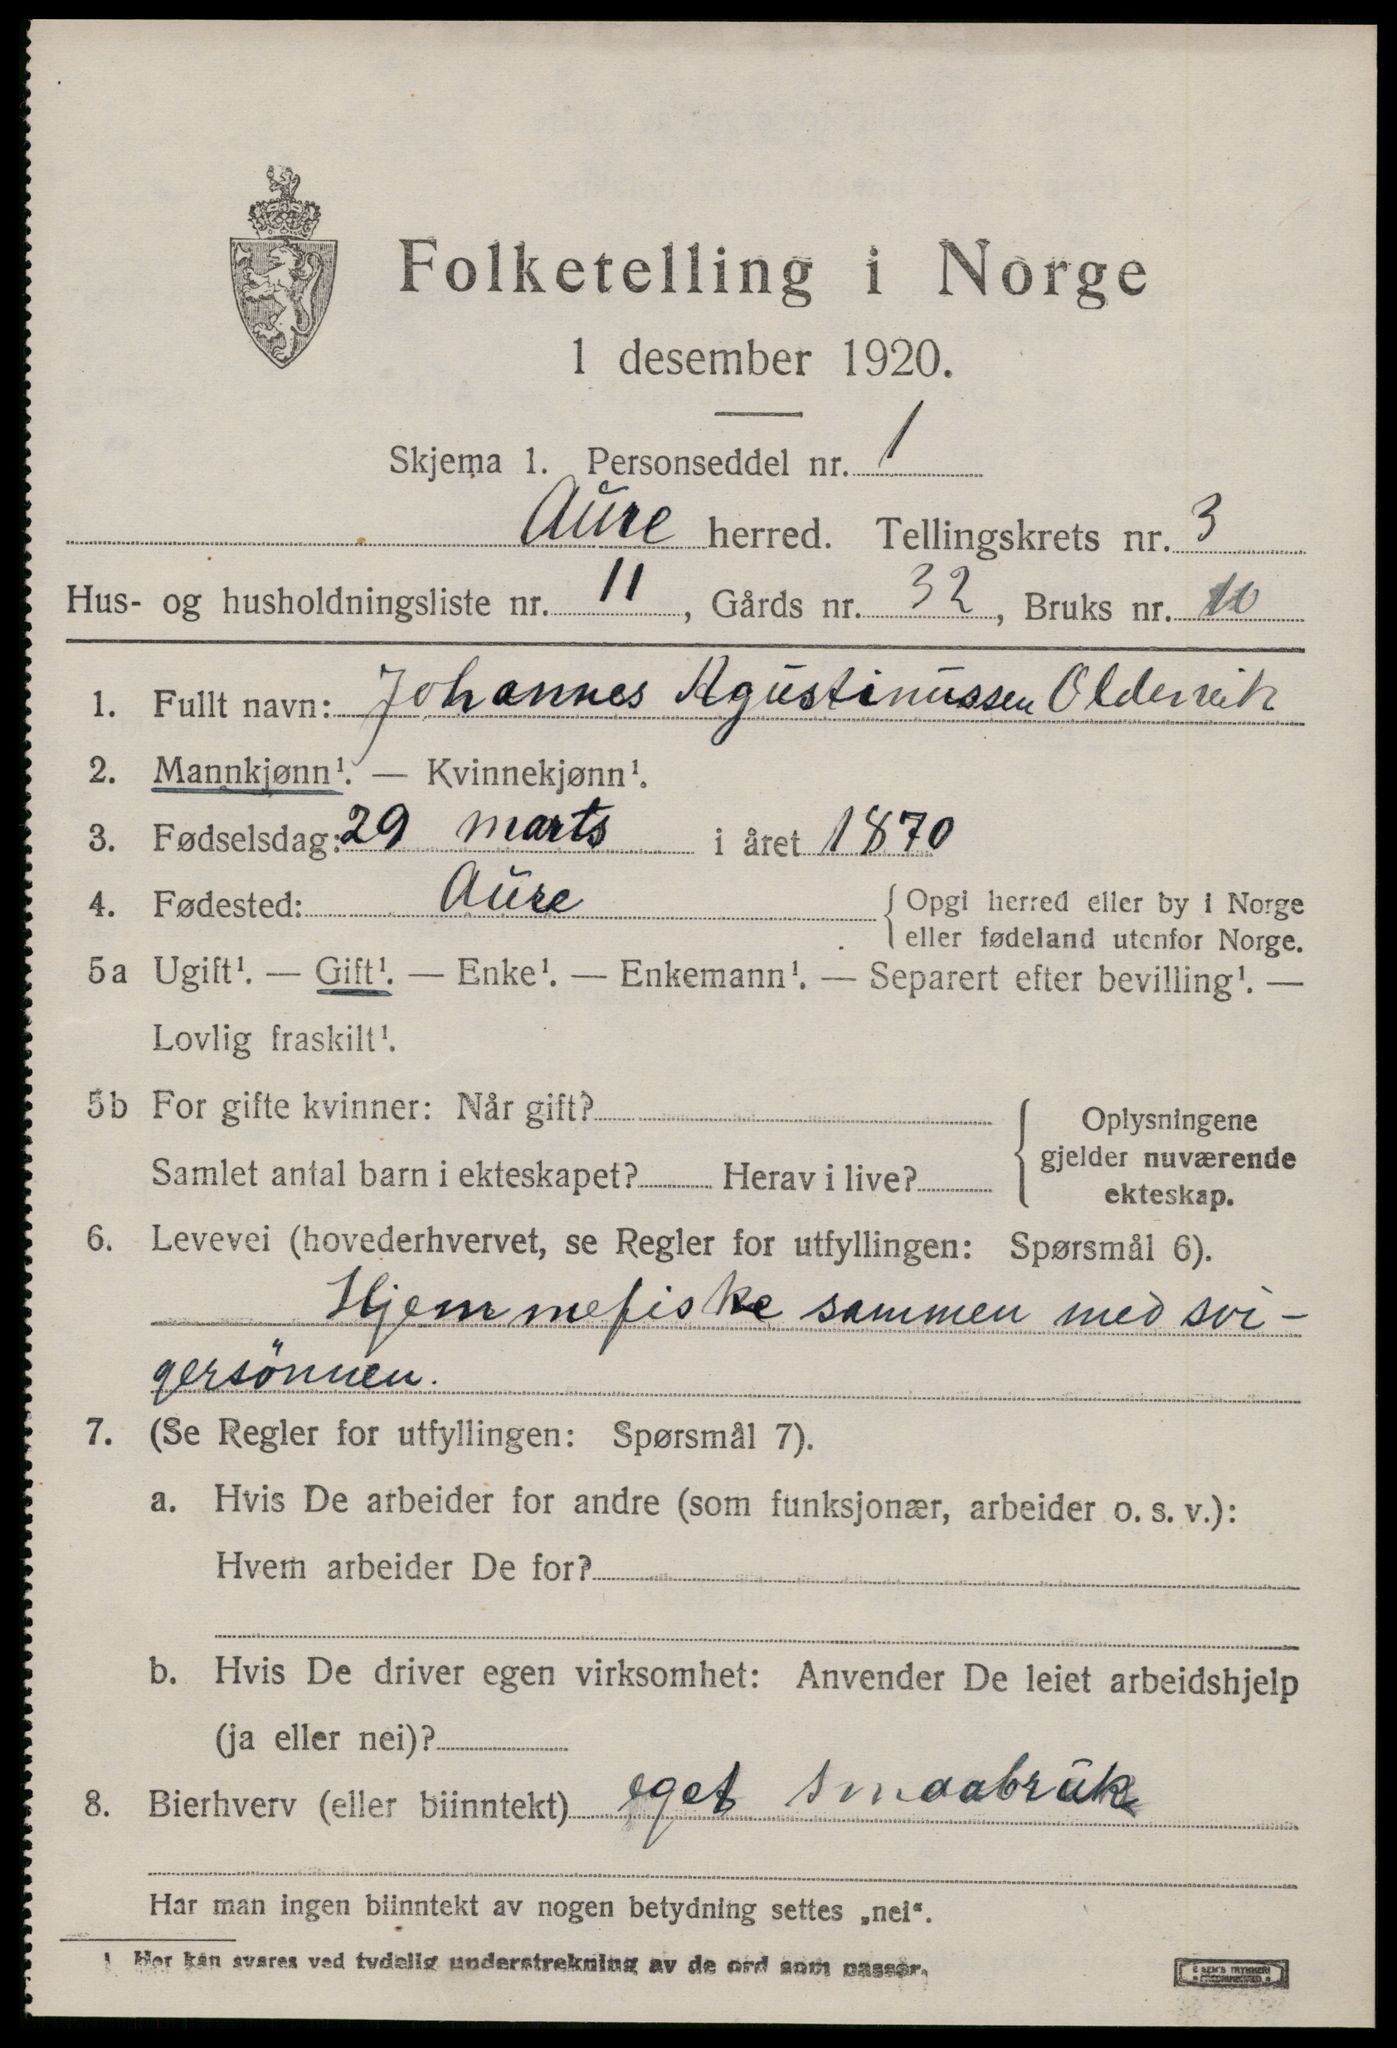 Folketelling i Norge
1 desember 1920.
Skjema 1. Personseddel nr. 1
Aure herred. Tellingskrets nr. 3
Hus- og husholdningsliste nr. 11, Gårds nr. 32, Bruks nr. 10
1. Fullt navn: Johannes Agustinussen Oldervik
2. Mannkjønn¹. — Kvinnekjønn¹.
3. Fødselsdag: 29 marts i året 1870
4. Fødested: Aure { Opgi herred eller by i Norge
eller fødeland utenfor Norge.
5a Ugift¹. — Gift¹. — Enke¹. — Enkemann¹. — Separert efter bevilling¹. —
Lovlig fraskilt¹.
5b For gifte kvinner: Når gift?
Samlet antal barn i ekteskapet? Herav i live?
{ Oplysningene
gjelder nuværende
ekteskap.
6. Levevei (hovederhvervet, se Regler for utfyllingen: Spørsmål 6).
Hjemmefiske sammen med svi-
gersönnen.
7. (Se Regler for utfyllingen: Spørsmål 7).
a. Hvis De arbeider for andre (som funksjonær, arbeider o. s. v.):
Hvem arbeider De for?
b. Hvis De driver egen virksomhet: Anvender De leiet arbeidshjelp
(ja eller nei)?
8. Bierhverv (eller biinntekt) eget smaabruk
Har man ingen biinntekt av nogen betydning settes „nei“.
1 Her kan svares ved tydelig understrekning av de ord som passer.